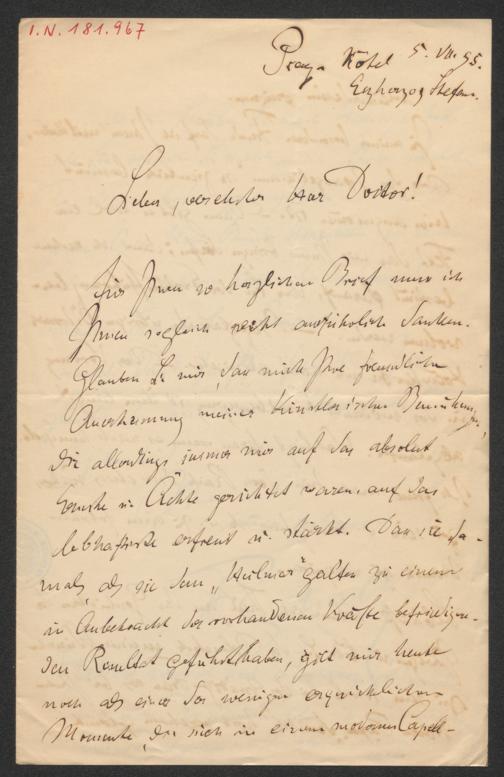 I.N. 181.967
Prag. Hôtel 5. VII. 95.
Erzherzog Stefan.
Lieber, verehrter Herr Doctor!
Für Ihren so herzlichen Brief muss ich
Ihnen sogleich recht ausführlich danken.
Glauben Sie mir, dass mich Ihre freundliche
Anerkennung meiner künstlerischen Bemühungen,
die allerdings immer nur auf das absolut
Ernste u. Ächte gerichtet waren, auf das
lebhafteste erfreut u. stärkt. Dass sie da-
mals, als sie dem „ galten zu einem
in Anbetracht der vorhandenen Kräfte befriedigen-
den Resultat geführt haben, gilt mir heute
noch als einer der wenigen erquicklichen
Momente, die sich in einem modernen Capell-